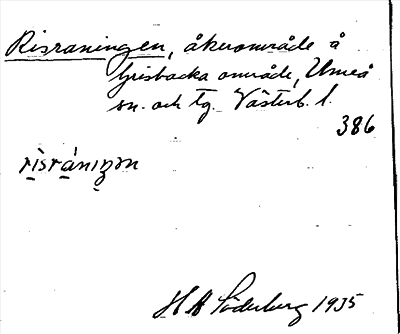 Risraningen, åkerområde å
Grisbacka område, Umeå
sn. och tg. Västerb. l.
386
rìsrániŋən
H A Söderberg 1935